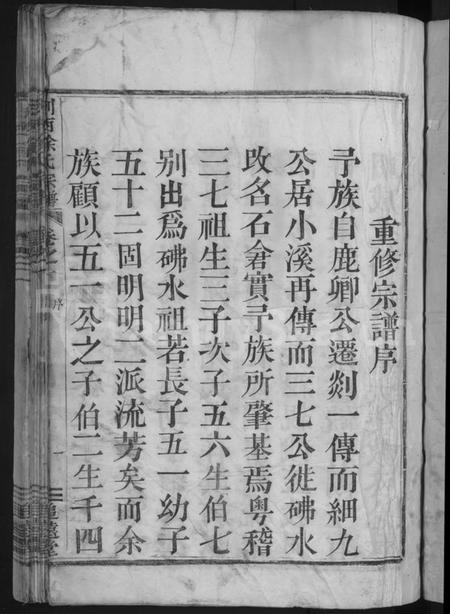 重修宗譜序
予族自鹿卿公遷剡一傳而細九
公居小溪再傳而三七公徙砩水
改名石倉實予族所肇基焉粵稽
三七祖生三子次子五六生伯七
别出爲砩水祖若長子五一幼子
五十二固明明二派流芳矣而余
族顧以五一公之子伯二生千四
剡西徐氏宗譜
卷之一
序
一